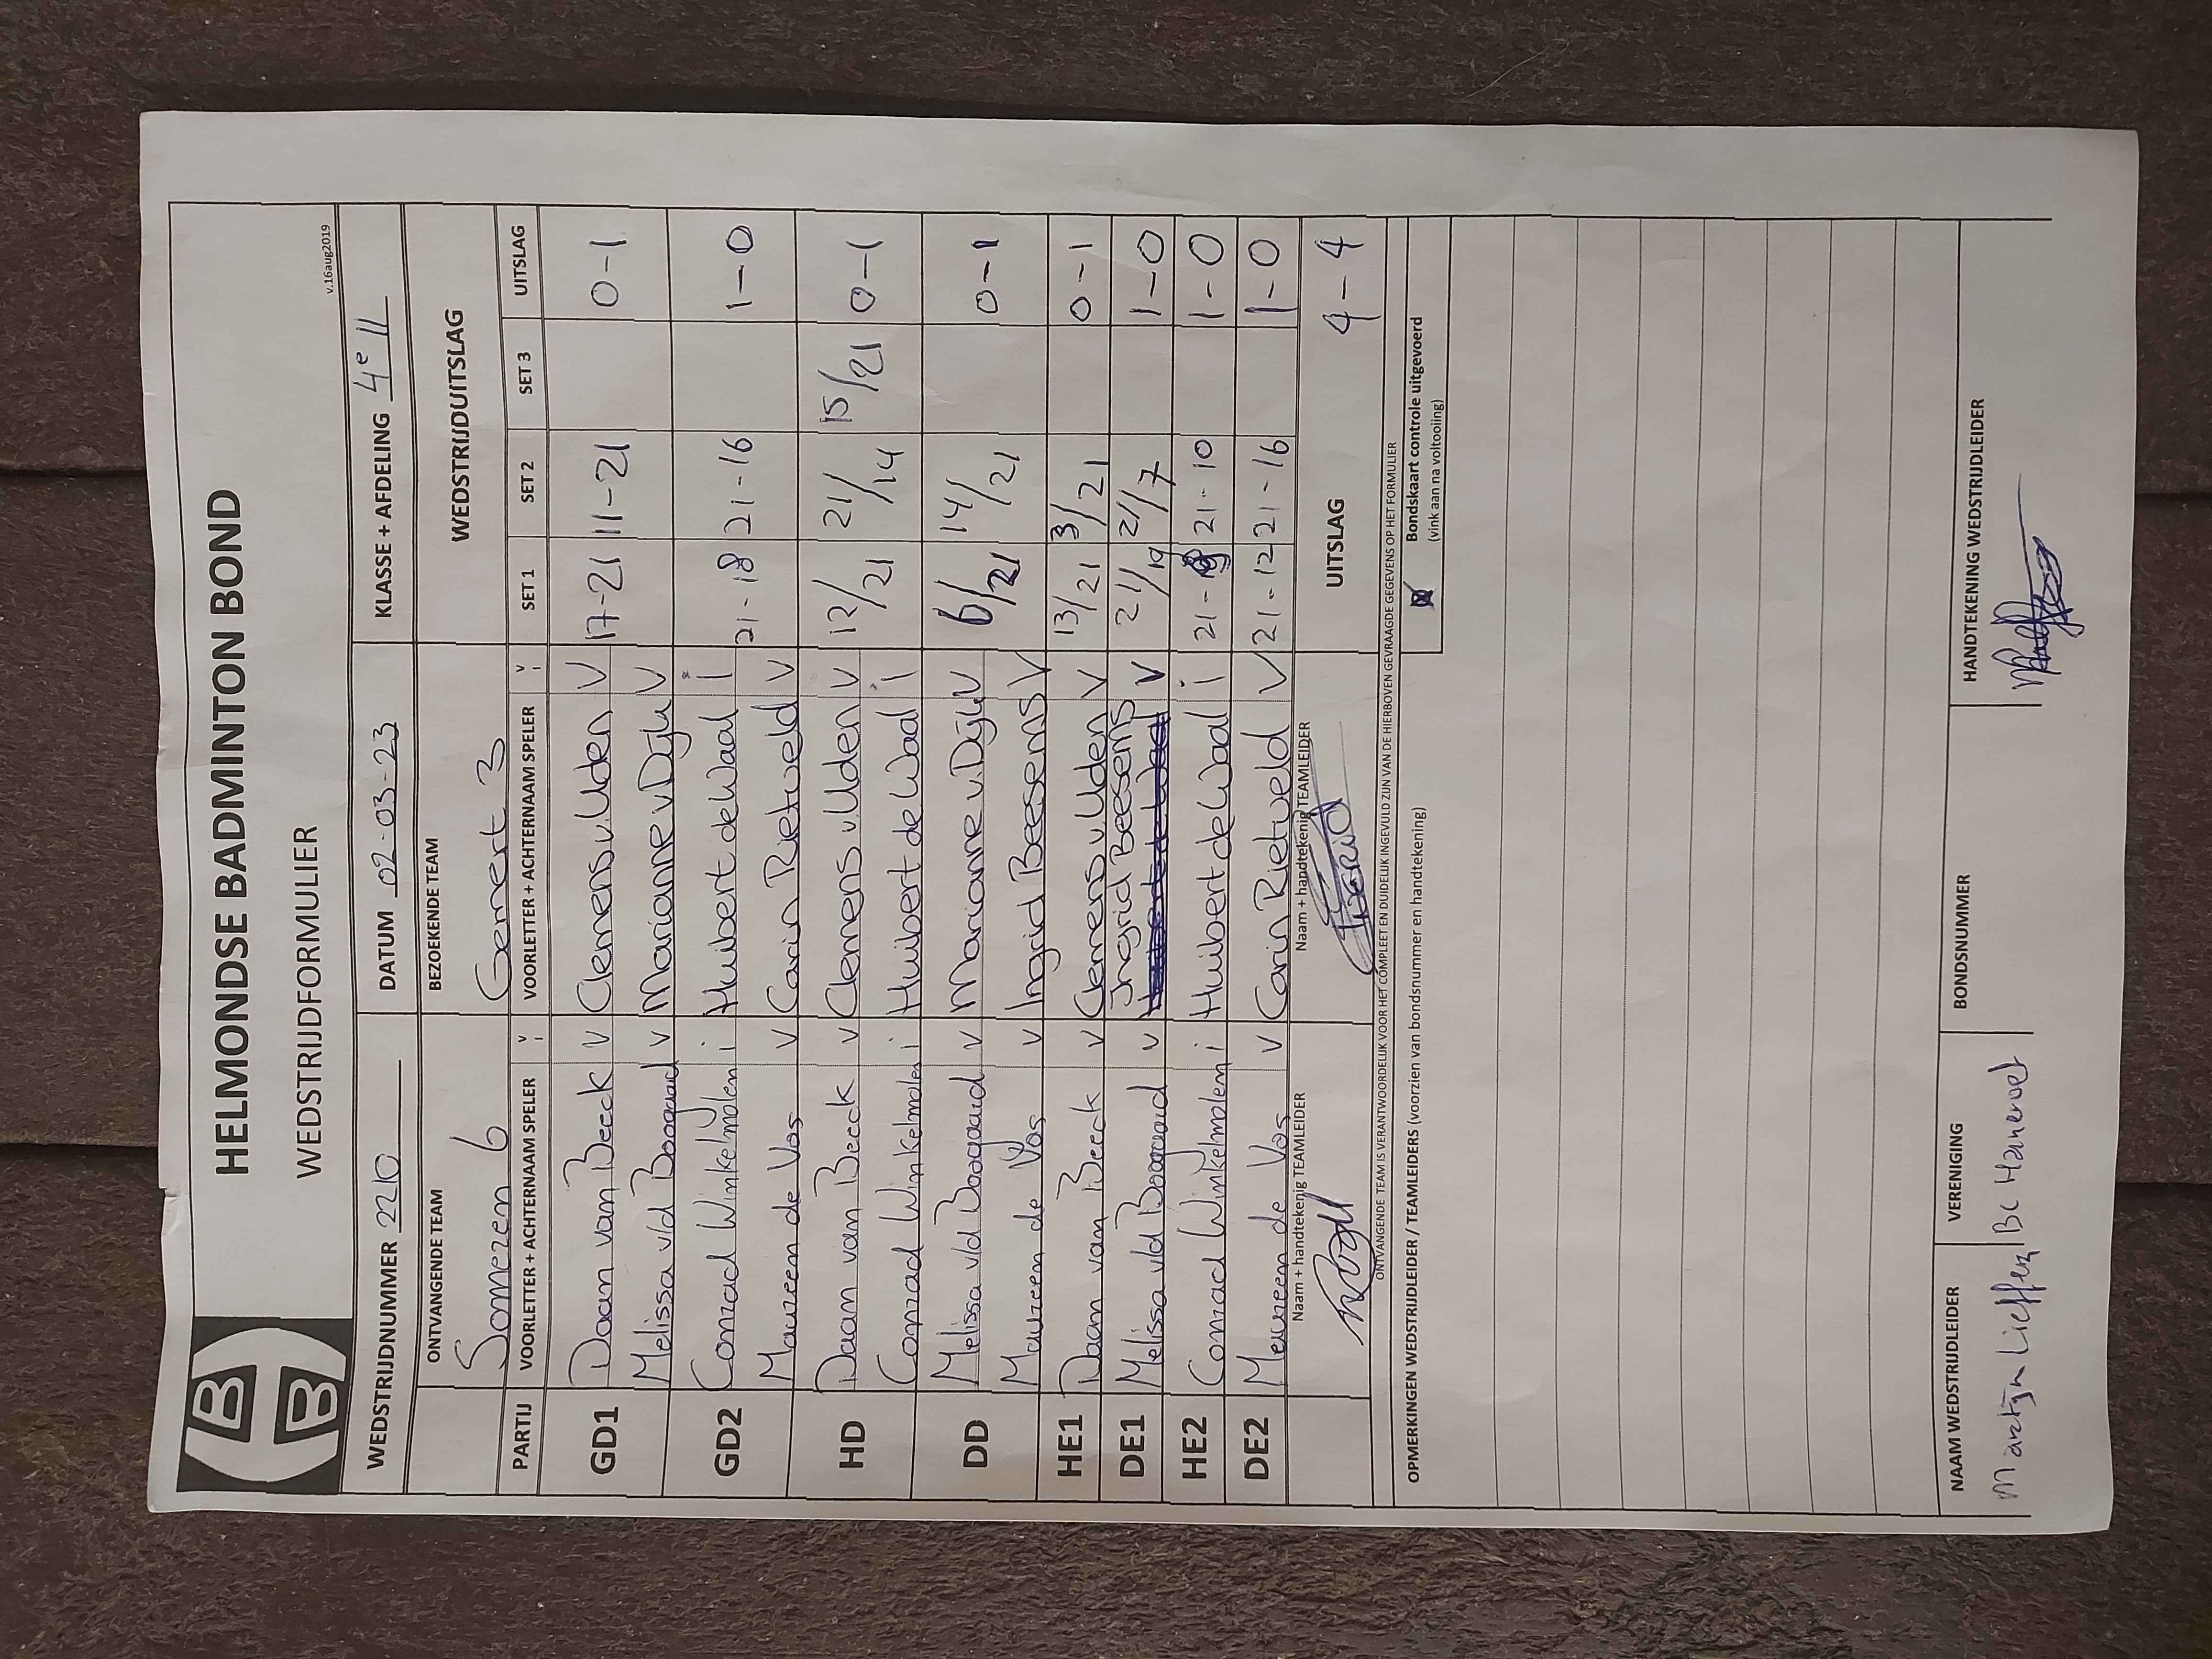 HELMONDSE BADMINTON BOND
WEDSTRIJDFORMULIER
v.16aug2019
WEDSTRIJDNUMMER 2210 DATUM 02-03-23 KLASSE + AFDELING 4e 11
ONTVANGENDE TEAM BEZOEKENDE TEAM WEDSTRIJDUITSLAG
Someren 6 Gemert 3
PARTIJ VOORLETTER + ACHTERNAAM SPELER VOORLETTER + ACHTERNAAM SPELER SET 1 SET 2 SET 3 UITSLAG
GD1 Daan van Beeck V Clemens v. Uden V 17-21 11-21 0-1
Melissa v/d Boogaard V Marianne v. Dijk V
GD2 Conrad Winkelmolen i Huibert de Waal i 21-18 21-16 1-0
Maureen de Vos V Carin Rietveld V
HD Daan van Beeck V Clemens v. Uden V 12/21 21/14 15/21 0-1
Conrad Winkelmolen i Huibert de Waal i
DD Melissa v/d Boogaard V Marianne v. Dijk V 6/21 14/21 0-1
Maureen de Vos V Ingrid Beesems V
HE1 Daan van Beeck V Clemens v Uden V 13/21 3/21 0-1
DE1 Melissa v/d Boogaard V Ingrid Beesems V 21/19 21/7 1-0
HE2 Conrad Winkelmolen i Huibert de Waal i 21- 21-10 1-0
DE2 Maureen de Vos V Carin Rietveld V 21-12 21-16 1-0
Naam + handtekenig TEAMLEIDER Naam + handtekenig TEAMLEIDER UITSLAG 4-4
ONTVANGENDE TEAM IS VERANTWOORDELIJK VOOR HET COMPLEET EN DUIDELIJK INGEVULD ZIJN VAN DE HIERBOVEN GEVRAAGDE GEGEVENS OP HET FORMULIER
OPMERKINGEN WEDSTRIJDLEIDER / TEAMLEIDERS (voorzien van bondsnummer en handtekening)
Bondskaart controle uitgevoerd
(vink aan na voltooiing)
NAAM WEDSTRIJDLEIDER VERENIGING BONDSNUMMER HANDTEKENING WEDSTRIJDLEIDER
Martijn BC Hanevoet